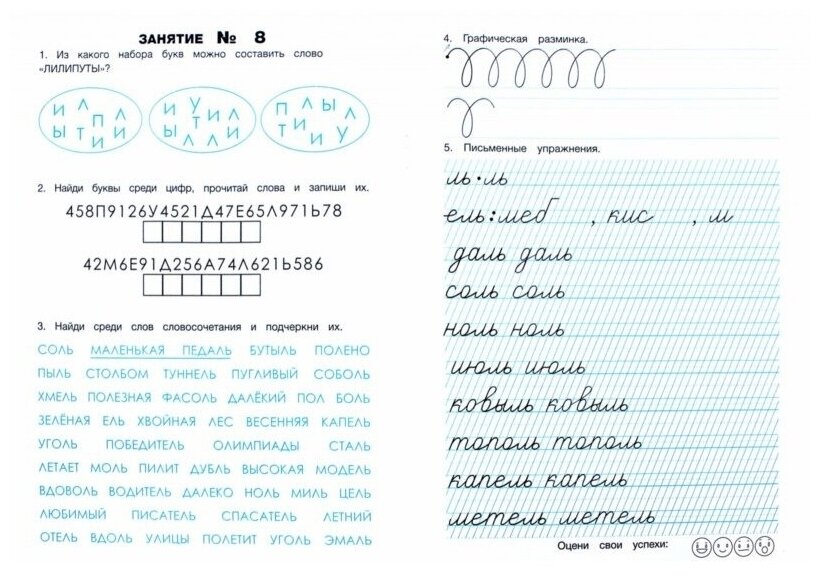 ЗАНЯТИЕ № 8
1. Из какого набора букв можно составить слово
«ЛИЛИПУТЫ»?
И Л П Л Ы Т И И
И У Т И Л Ы Л Л И
П Л Ы Л Т И И У
2. Найди буквы среди цифр, прочитай слова и запиши их.
458П9126У4521Д47Е65Л971Ь78
42М6Е91Д256А74Л621Ь586
3. Найди среди слов словосочетания и подчеркни их.
СОЛЬ МАЛЕНЬКАЯ ПЕДАЛЬ БУТЫЛЬ ПОЛЕНО
ПЫЛЬ СТОЛБОМ ТУННЕЛЬ ПУГЛИВЫЙ СОБОЛЬ
ХМЕЛЬ ПОЛЕЗНАЯ ФАСОЛЬ ДАЛЁКИЙ ПОЛ БОЛЬ
ЗЕЛЁНАЯ ЕЛЬ ХВОЙНАЯ ЛЕС ВЕСЕННЯЯ КАПЕЛЬ
УГОЛЬ ПОБЕДИТЕЛЬ ОЛИМПИАДЫ СТАЛЬ
ЛЕТАЕТ МОЛЬ ПИЛИТ ДУБЛЬ ВЫСОКАЯ МОДЕЛЬ
ВДОВОЛЬ ВОДИТЕЛЬ ДАЛЕКО НОЛЬ МИЛЬ ЦЕЛЬ
ЛЮБИМЫЙ ПИСАТЕЛЬ СПАСАТЕЛЬ ЛЕТНИЙ
ОТЕЛЬ ВДОЛЬ УЛИЦЫ ПОЛЕТИТ УГОЛЬ ЭМАЛЬ
4. Графическая разминка.
5. Письменные упражнения.
ль·ль
ель:меб , кис , м
даль даль
соль соль
ноль ноль
июль июль
ковыль ковыль
тополь тополь
капель капель
метель метель
Оцени свои успехи: